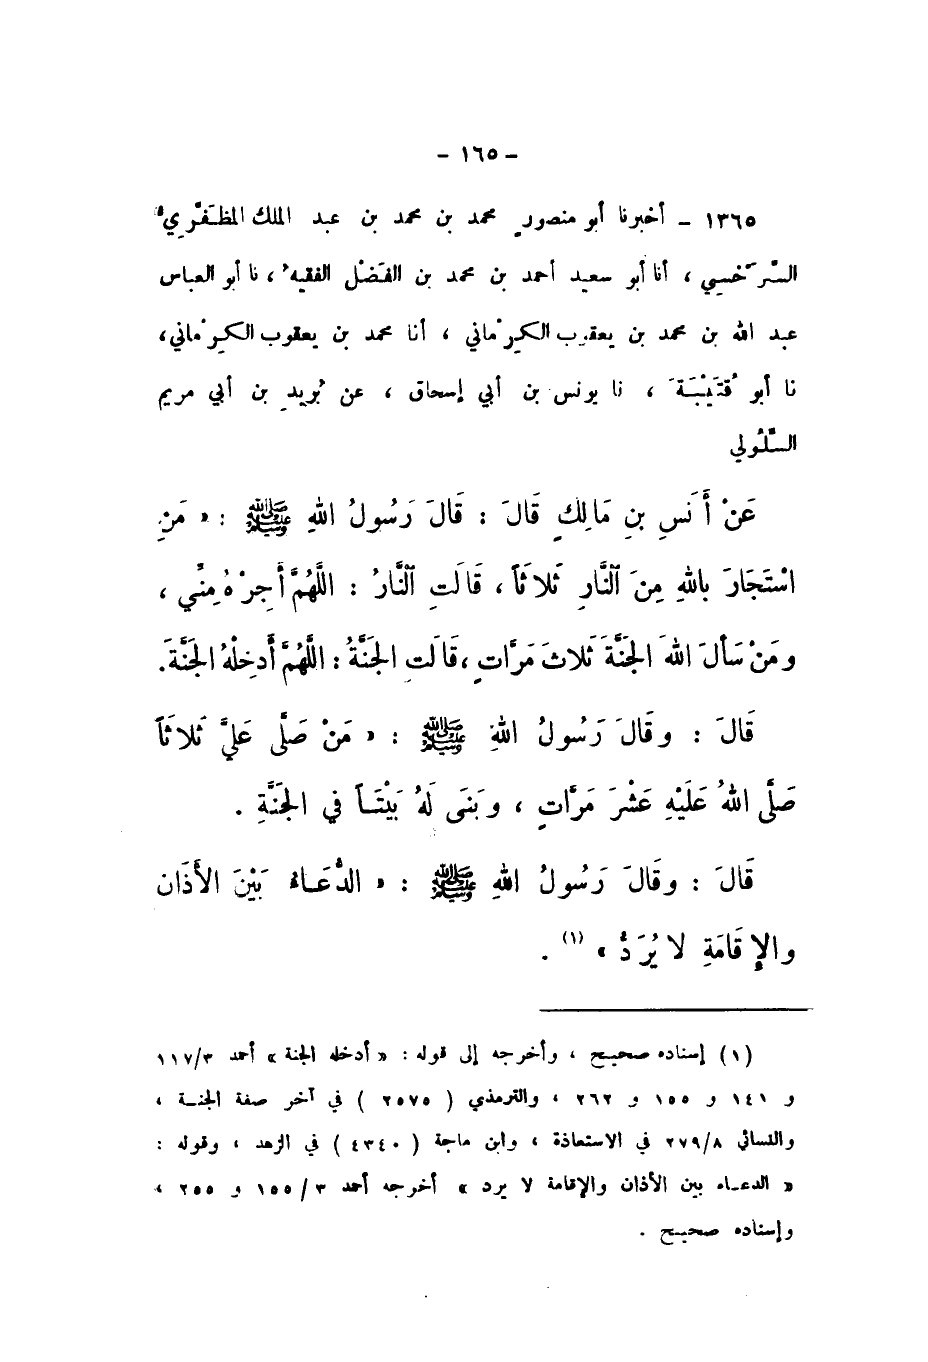 - ١٦٥ -
١٣٦٥ - أخبرنا أبو منصورٍ محمد بن محمد بن عبد الملك المظَفَّرِيُّ
السَّرَخْسِي ، أنا أبو سعيد أحمد بن محمد بن الفَضْل الفقيهُ ، نا أبو العباس
عبد الله بن محمد بن يعقوب الكِرْماني ، أنا محمد بن يعقوب الكِرْماني ،
نا أبو قُتَيْبَةَ ، نا يونس بن أبي إسحاق ، عن بُرَيدِ بن أبي مريم
السَّلُولي
عَنْ أَنَسِ بنِ مَالِكٍ قَالَ : قَالَ رَسُولُ اللهِ ﷺ : « مَنِ
اسْتَجَارَ بِاللهِ مِنَ ٱلنَّارِ ثَلاثاً ، قَالَتِ ٱلنَّارُ : اللَّهُمَّ أَجِرْهُ مِنِّي ،
ومَنْ سَأَلَ اللهَ الجَنَّةَ ثَلاثَ مَرَّاتٍ ، قَالَتِ الجَنَّةُ : اللَّهُمَّ أَدخِلْهُ الجَنَّةَ.
قَالَ : وقَالَ رَسُولُ اللهِ ﷺ : « مَنْ صَلَّى عَلَيَّ ثَلاثَاً
صَلَّى اللهُ عَلَيْهِ عَشْرَ مَرَّاتٍ ، وبَنَى لَهُ بَيْتَاً فِي الجَنَّةِ .
قَالَ : وقَالَ رَسُولُ اللهِ ﷺ : « الدُّعَاءُ بَيْنَ الأَذَان
والإِقَامَةِ لا يُرَدُّ » (١) .
(١) إسناده صحيح ، وأخرجه إلى قوله : « أدخله الجنة » أحمد ١١٧/٣
و ١٤١ و ١٥٥ و ٢٦٢ ، والترمذي ( ٢٥٧٥ ) في آخر صفة الجنة ،
والنسائي ٢٧٩/٨ في الاستعاذة ، وابن ماجة ( ٤٣٤٠ ) في الزهد ، وقوله :
« الدعاء بين الأذان والإقامة لا يرد » أخرجه أحمد ١٥٥/٣ و ٢٥٥ ،
وإسناده صحيح .